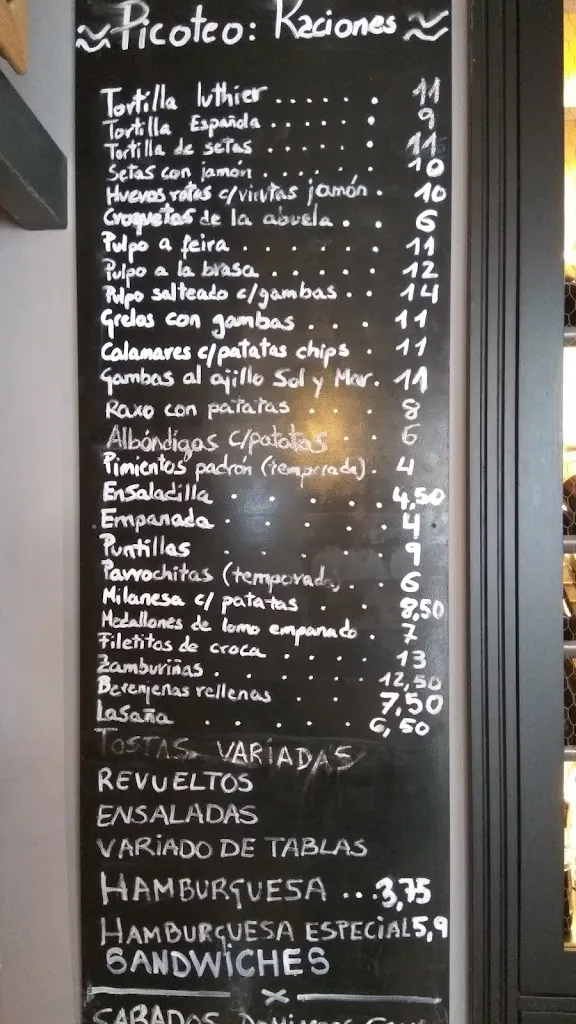 Picoteo: Raciones
Tortilla luthier...... 11
Tortilla Española...... 9
Tortilla de setas...... 11
Setas con jamón...... 10
Huevos rotos c/virutas jamón. 10
Croquetas de la abuela.. 6
Pulpo a feira...... 11
Pulpo a la brasa...... 12
Pulpo salteado c/gambas.. 14
Grelos con gambas... 11
Calamares c/patatas chips. 11
Gambas al ajillo Sol y Mar. 11
Raxo con patatas... 8
Albóndigas c/patatas.. 6
Pimientos padrón (temporada). 4
Ensaladilla..... 4,50
Empanada..... 4
Puntillas..... 9
Parrochitas (temporada).. 6
Milanesa c/ patatas... 8,50
Medallones de lomo empanado. 7
Filetitos de croca.... 13
Zamburiñas...... 12,50
Berenjenas rellenas.... 7,50
Lasaña..... 6,50
TOSTAS VARIADAS
REVUELTOS
ENSALADAS
VARIADO DE TABLAS
HAMBURGUESA ...3,75
HAMBURGUESA ESPECIAL 5,9
SANDWICHES
SABADOS